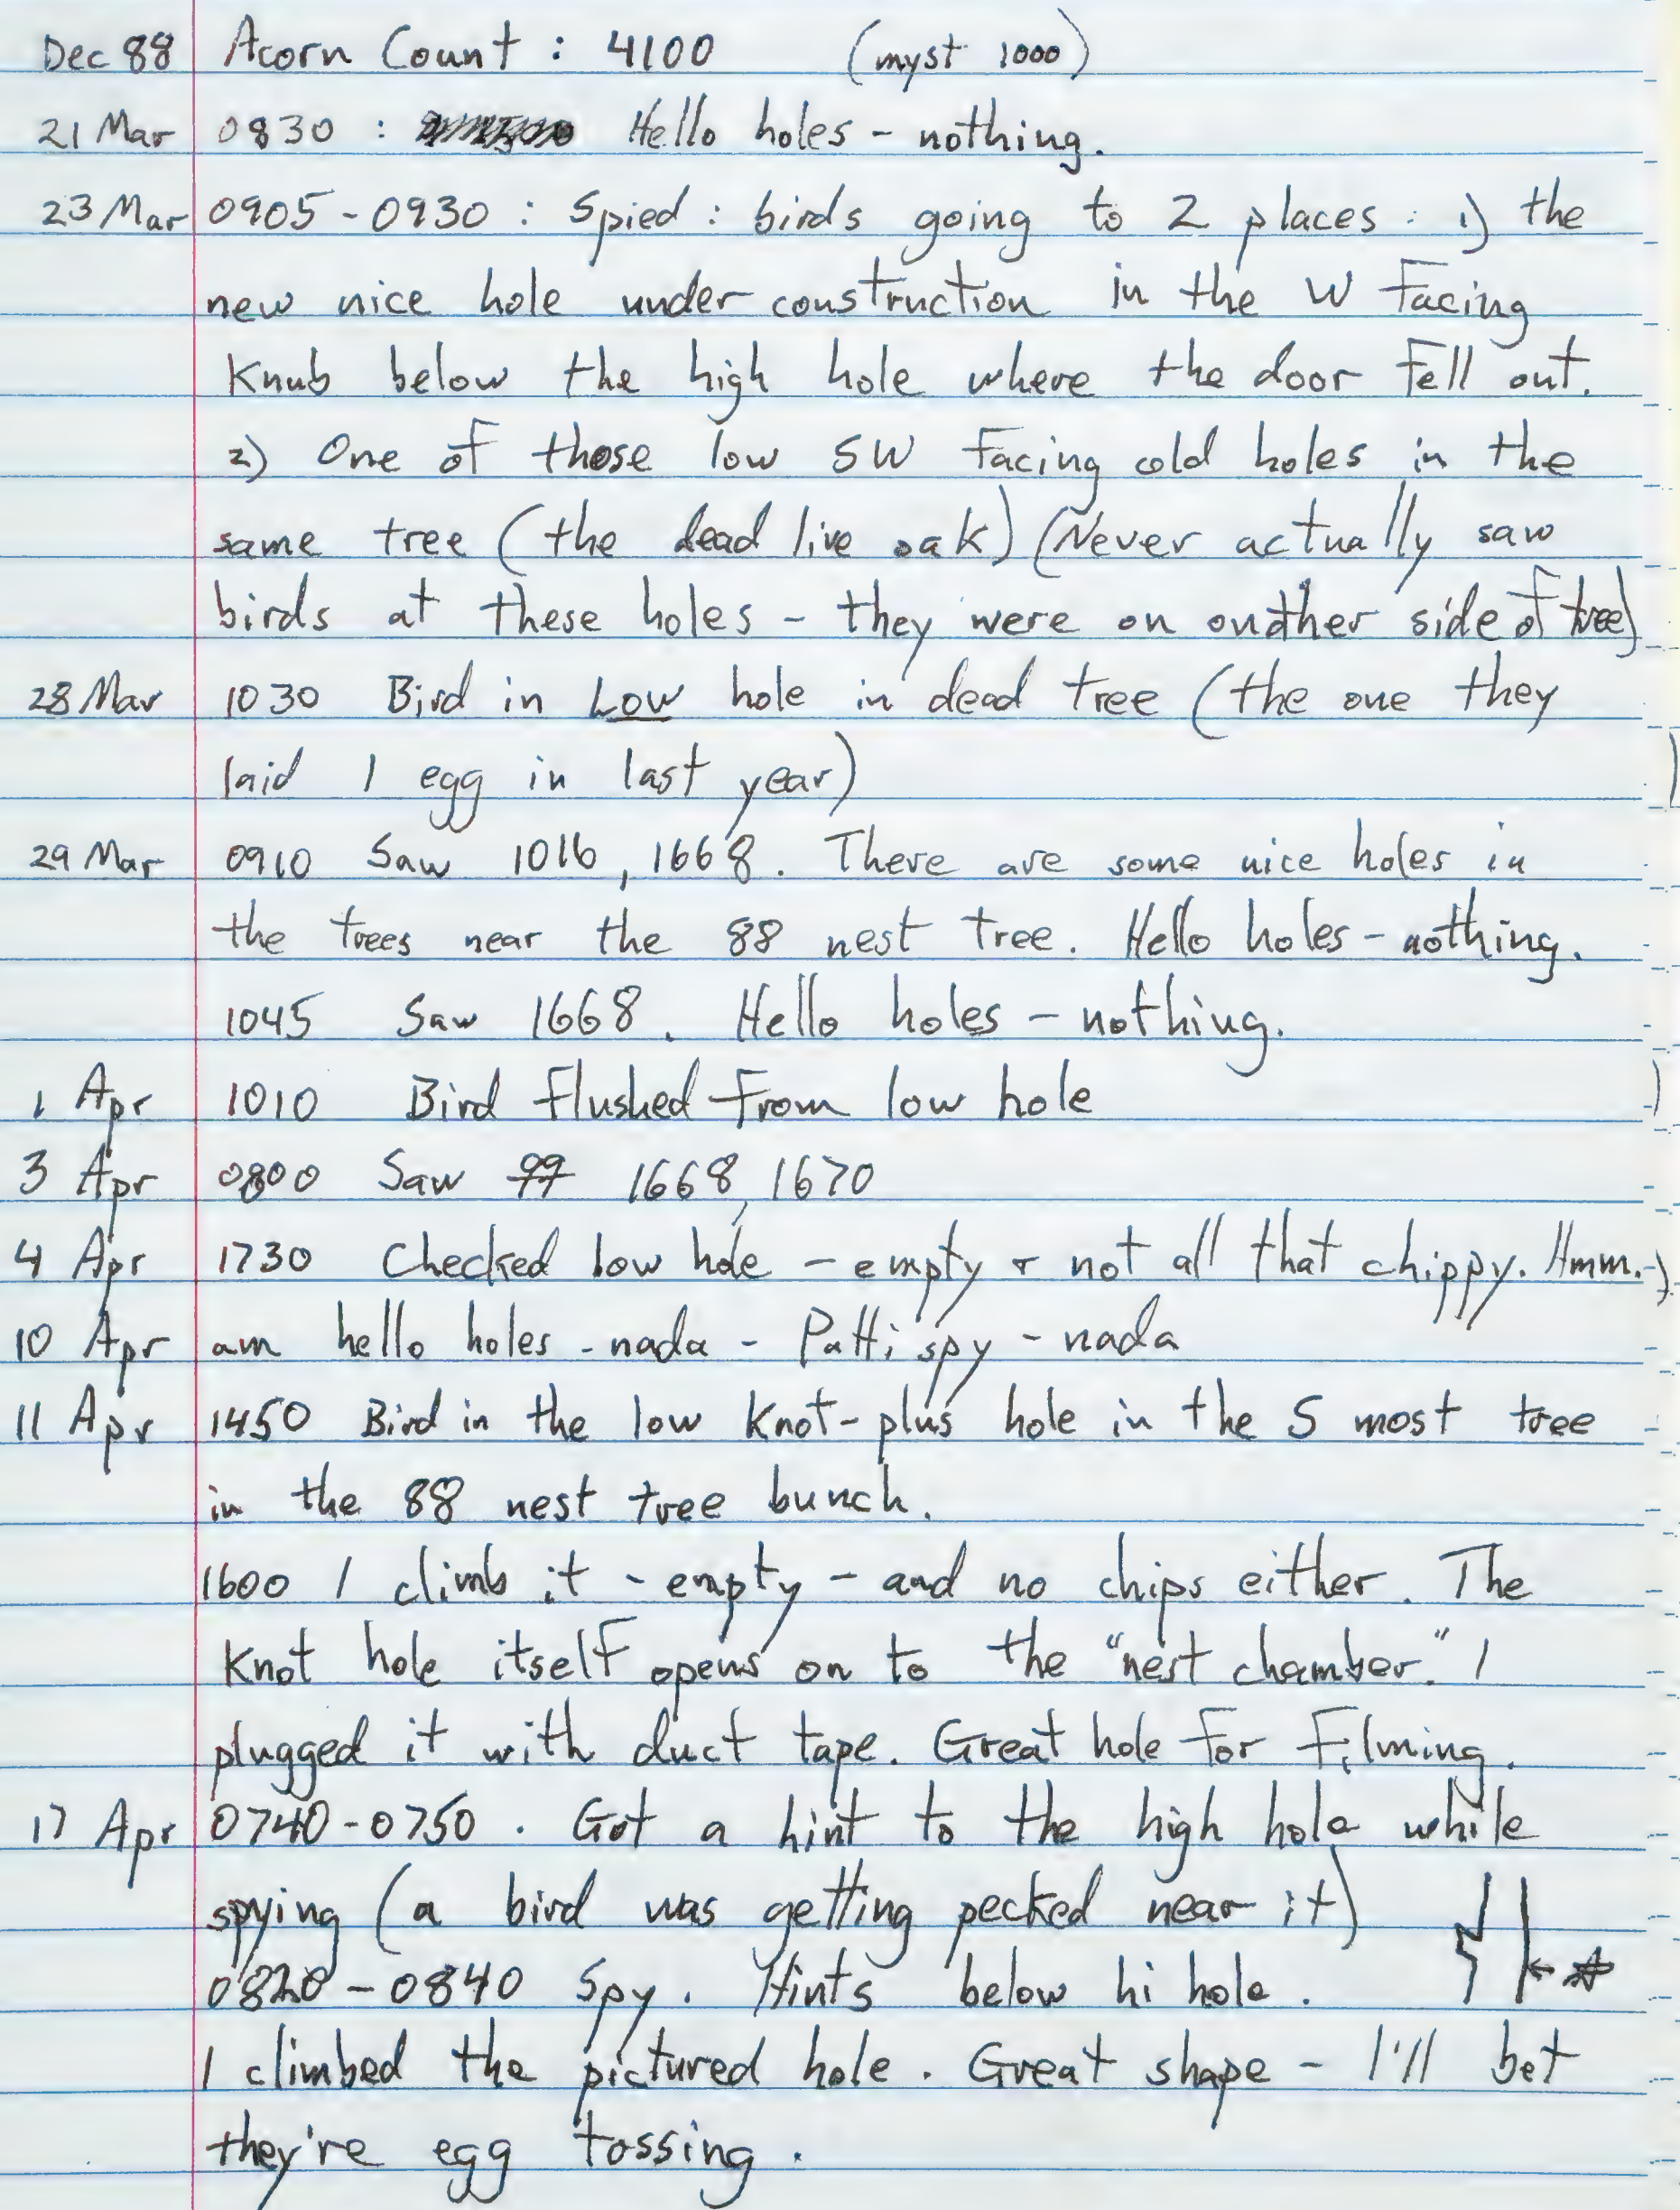 Dec 88 Acorn Count : 4100 (myst 1000)
21 Mar 0830 : Hello holes - nothing.
23 Mar 0905-0930 : Spied : birds going to 2 places : 1) the
new nice hole under construction in the W facing
Knub below the high hole where the door fell out.
2) One of those low SW facing cold holes in the
same tree (the dead live oak) (Never actually saw
birds at these holes - they were on onother side of tree)
28 Mar 1030 Bird in Low hole in dead tree (the one they
laid 1 egg in last year)
29 Mar 0910 Saw 1016, 1668. There are some nice holes in
the trees near the 88 nest tree. Hello holes - nothing.
1045 Saw 1668. Hello holes - nothing.
1 Apr 1010 Bird flushed from low hole
3 Apr 0800 Saw 99 1668, 1670
4 Apr 1730 Checked low hole - empty + not all that chippy. Hmm.
10 Apr am hello holes - nada - Patti spy - nada
11 Apr 1450 Bird in the low knot-plus hole in the S most tree
in the 88 nest tree bunch.
1600 I climb it - empty - and no chips either. The
Knot hole itself opens on to the "nest chamber." I
plugged it with duct tape. Great hole for filming.
17 Apr 0740-0750. Got a hint to the high hole while
spying (a bird was getting pecked near it)
0820-0840 Spy. Hints below hi hole.
I climbed the pictured hole. Great shape - I'll bet
they're egg tossing.